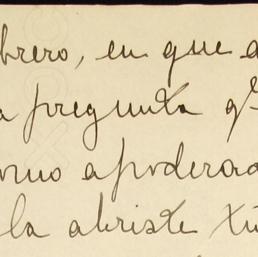 brero, en que a
a pregunta qe
omo apoderad
la abriste tú